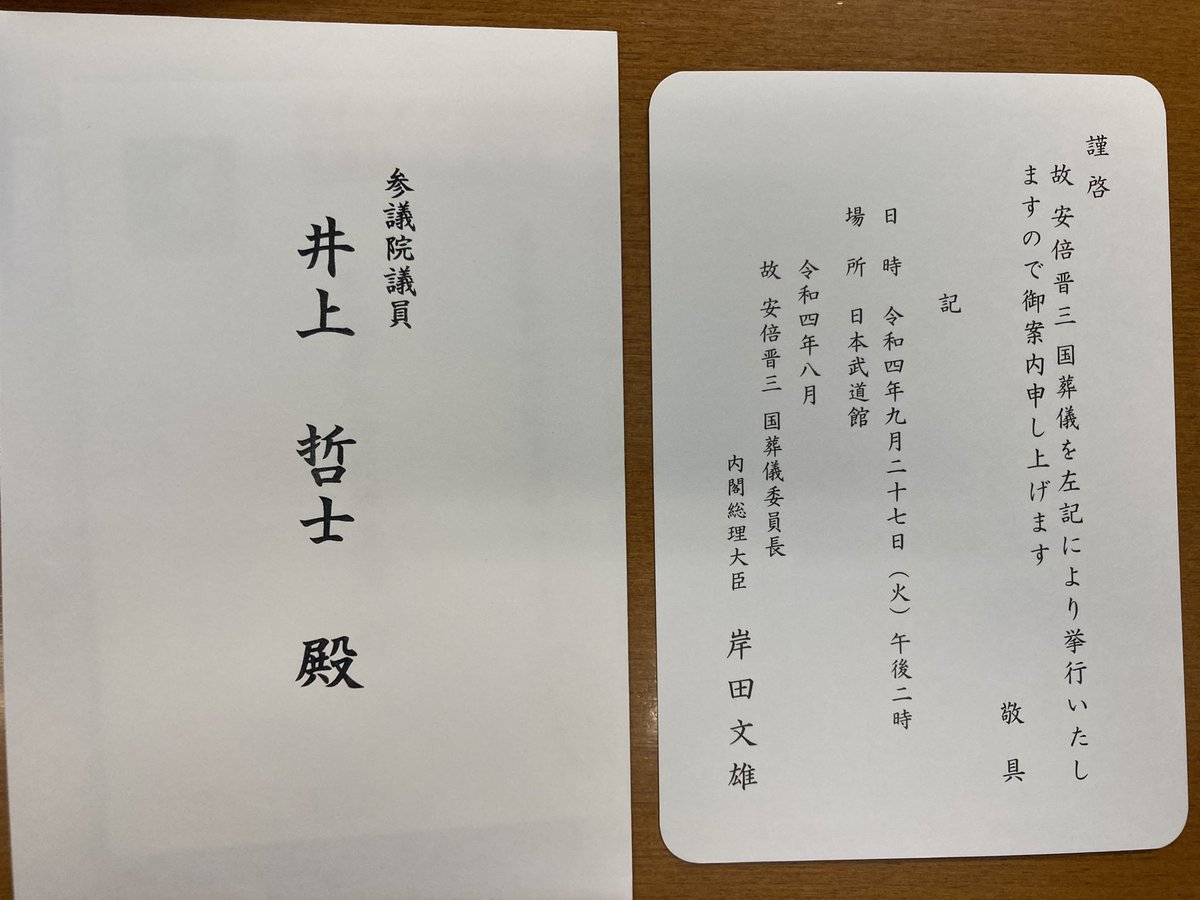 参議院議員
井上 哲士 殿
謹啓
故 安倍晋三 国葬儀を左記により挙行いたし
ますので御案内申し上げます
敬具
記
日 時 令和四年九月二十七日（火）午後二時
場 所 日本武道館
令和四年八月
故 安倍晋三 国葬儀委員長
内閣総理大臣 岸田文雄